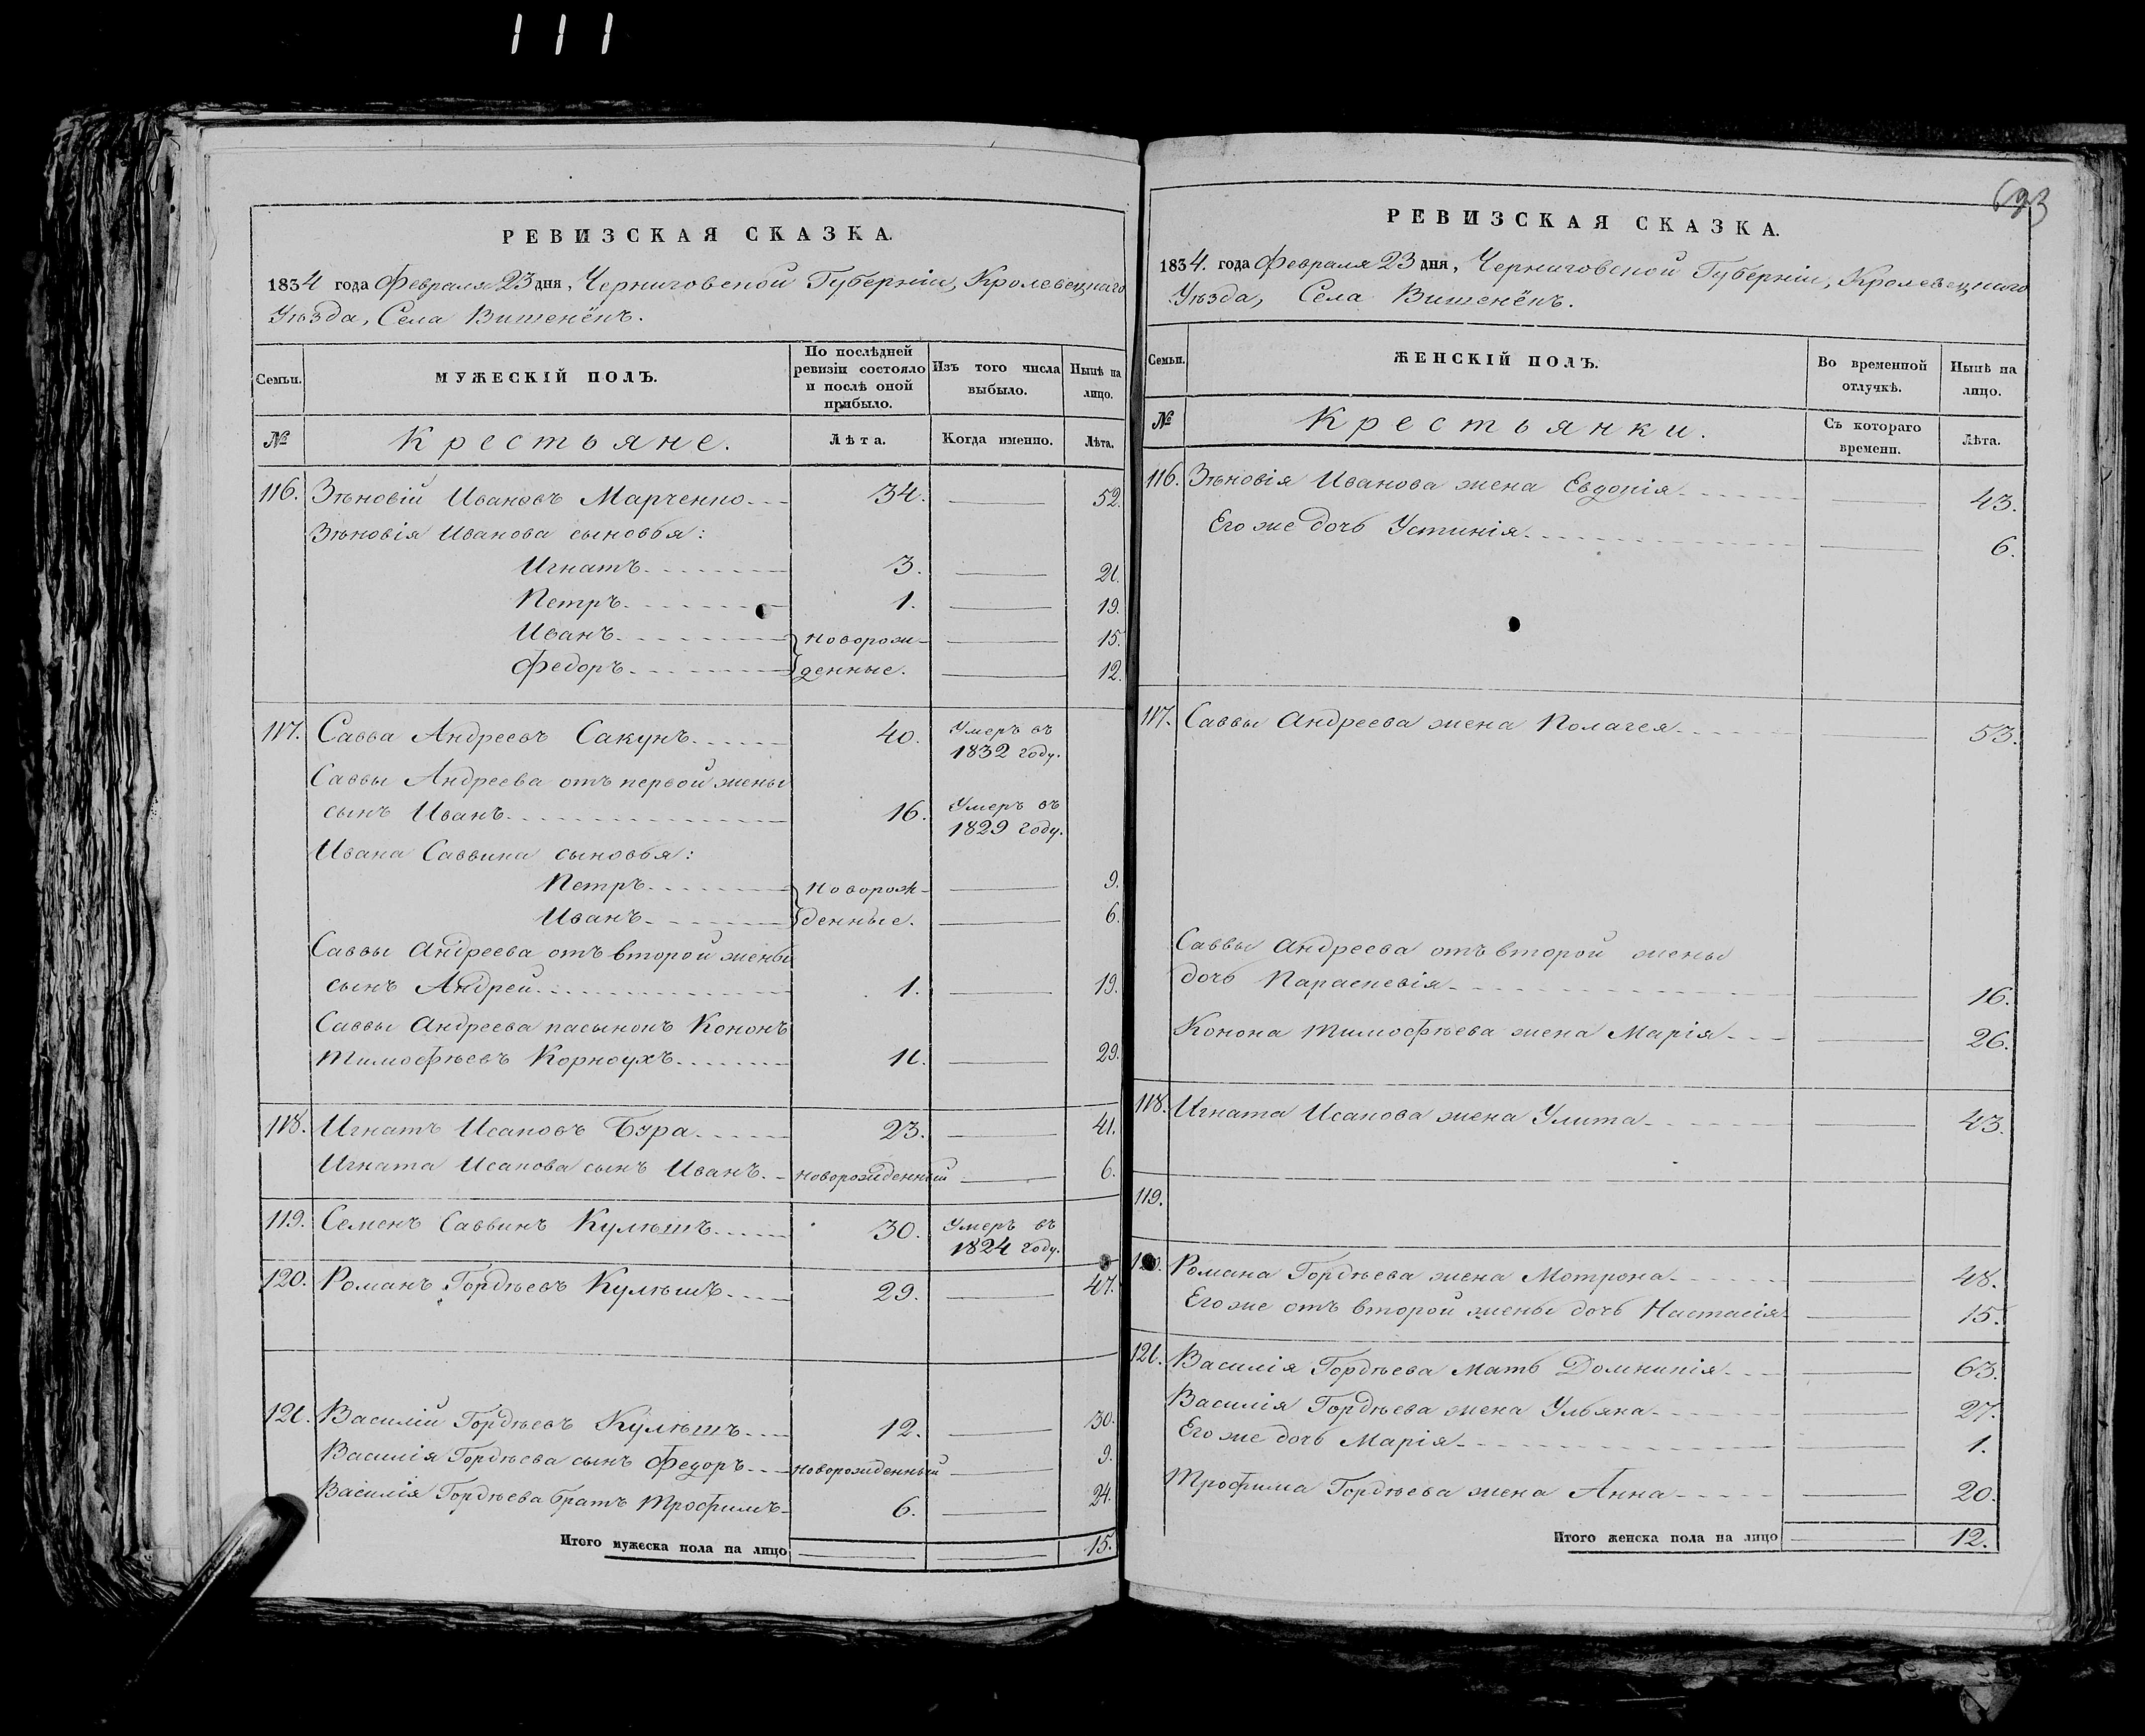 111
РЕВИЗСКАЯ СКАЗКА.
1834 года Февраля 23 дня, Черниговской Губерніи, Кролевецкаго
Уѣзда, Села Вишенёкъ.
Семьи. МУЖЕСКІЙ ПОЛЪ. По послѣдней ревизіи состояло и послѣ оной прибыло. Изъ того числа выбыло. Нынѣ на лицо.
№ Крестьяне. Лѣта. Когда именно. Лѣта.
116. Зѣновій Ивановъ Марченко 34. 52.
Зѣновія Иванова сыновья:
Игнатъ 3. 21.
Петръ 1. 19.
Иванъ новорож- 15.
Федоръ денные. 12.
117. Савва Андреевъ Сакунъ 40. Умеръ въ 1832 году.
Саввы Андреева отъ первой жены
сынъ Иванъ 16. Умеръ въ 1829 году.
Ивана Саввина сыновья:
Петръ новорож- 9.
Иванъ денные. 6.
Саввы Андреева отъ второй жены
сынъ Андрей 1. 19.
Саввы Андреева пасынокъ Кононъ
Тимофѣевъ Корноухъ 11. 29.
118. Игнатъ Исаковъ Бура 23. 41.
Игната Исакова сынъ Иванъ новорожденный 6.
119. Семенъ Саввинъ Кулѣшъ 30. Умеръ въ 1824 году.
120. Романъ Гордѣевъ Кулѣшъ 29. 47.
121. Василій Гордѣевъ Кулѣшъ 12. 30.
Василія Гордѣева сынъ Федоръ новорожденный 9.
Василія Гордѣева братъ Трофимъ 6. 24.
Итого мужеска пола на лицо 15.
693
РЕВИЗСКАЯ СКАЗКА.
1834. года Февраля 23 дня, Черниговской Губерніи, Кролевецкаго
Уѣзда, Села Вишенёкъ.
Семьи. ЖЕНСКІЙ ПОЛЪ. Во временной отлучкѣ. Нынѣ на лицо.
№ Крестьянки. Съ котораго времени. Лѣта.
116. Зѣновія Иванова жена Евдокія 43.
Его же дочь Устинія 6.
117. Саввы Андреева жена Полагея 53.
Саввы Андреева отъ второй жены
дочь Параскевія 16.
Конона Тимофѣева жена Марія 26.
118. Игната Исакова жена Улита 43.
119.
120. Романа Гордѣева жена Мотрона 48.
Его же отъ второй жены дочь Настасія 15.
121. Василія Гордѣева мать Домникія 63.
Василія Гордѣева жена Ульяна 27.
Его же дочь Марія 1.
Трофима Гордѣева жена Анна 20.
Итого женска пола на лицо 12.